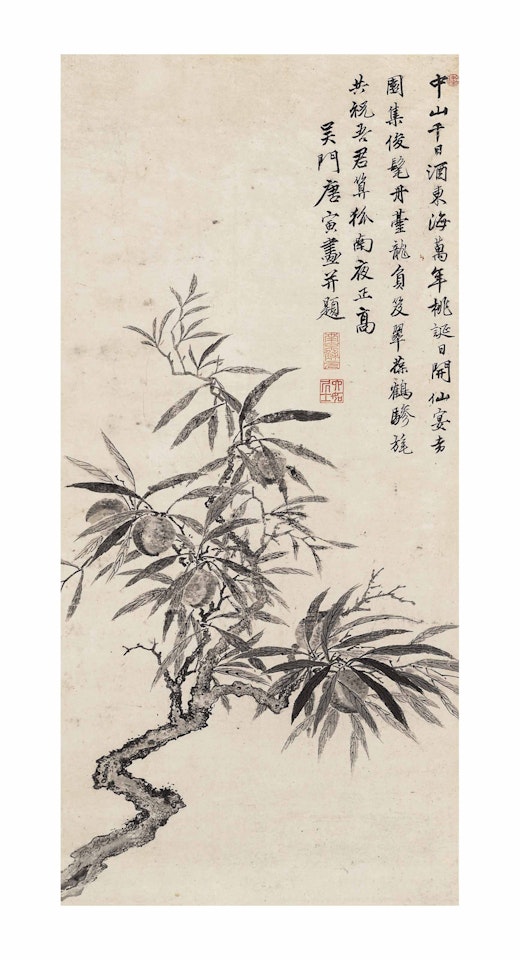 中山千日酒東海萬年桃誕日開仙宴芳
園集俊髦丹臺龍負笈翠葆鶴驂旄
共祝吾君算弧南夜正高
吳門唐寅畫并題
南京解元
六如居士